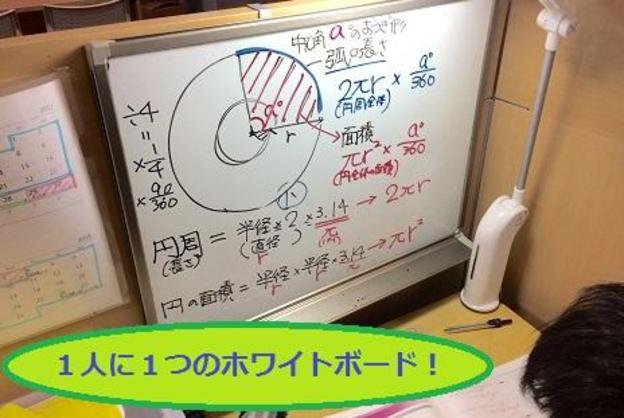 中心角a°のおうぎ形
弧の長さ
2πr × a°/360
(円周全体)
a°
r
面積
πr² × a°/360
(円全体の面積)
÷4
=
× 1/4
× 90/360
円周 = 半径×2×3.14 → 2πr
(長さ)
(直径)
r
π
円の面積 = 半径×半径×3.14 → πr²
r
r
π
2017
1人に1つのホワイトボード!